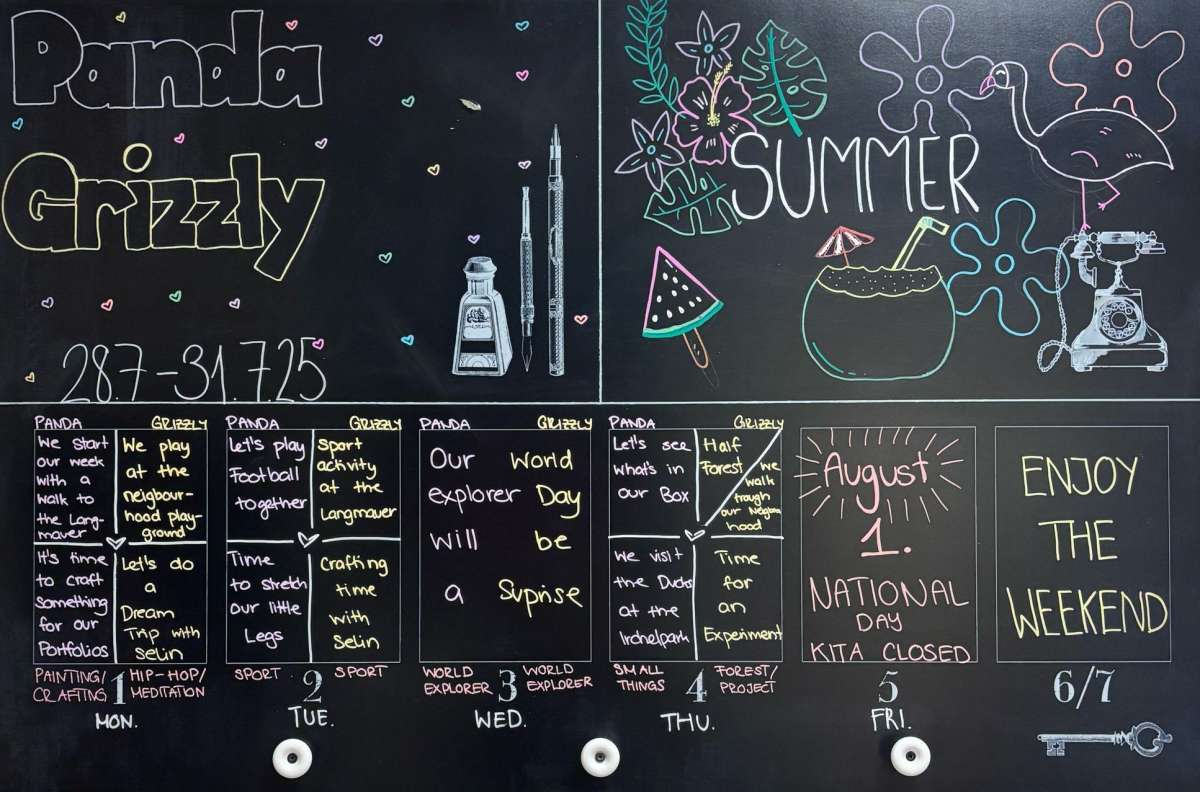 Panda
Grizzly
28.7-31.7.25
SUMMER
PANDA GRIZZLY
We start
our week
with a
walk to
the Lang-
mauer
We play
at the
neigbour-
hood play-
ground
It's time
to craft
something
for our
Portfolios
Let's do
a
Dream
Trip with
selin
PAINTING/
CRAFTING
1
HIP-HOP/
MEDITATION
MON.
PANDA GRIZZLY
Let's play
Football
together
Sport
activity
at the
Langmauer
Time
to stretch
our little
Legs
Crafting
time
with
Selin
SPORT
2
SPORT
TUE.
PANDA GRIZZLY
Our World
explorer Day
will be
a Suprise
WORLD
EXPLORER
3
WORLD
EXPLORER
WED.
PANDA GRIZZLY
Let's see
what's in
our Box
Half
Forest
we
walk
trough
our Neigbour
hood
We visit
the Ducks
at the
Irchelpark
Time
for
an
Experiment
SMALL
THINGS
4
FOREST/
PROJECT
THU.
August
1.
NATIONAL
DAY
KITA CLOSED
5
FRI.
ENJOY
THE
WEEKEND
6/7